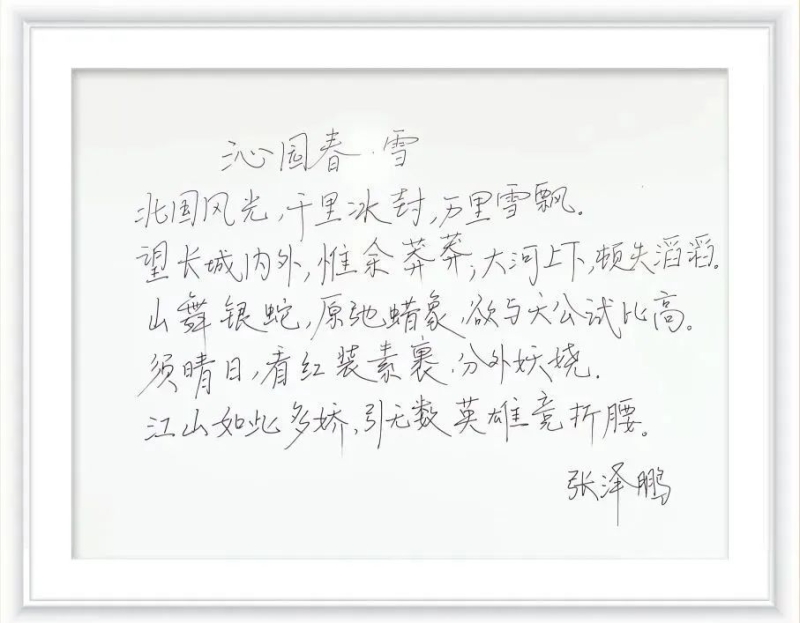 沁园春·雪
北国风光,千里冰封,万里雪飘.
望长城内外,惟余莽莽;大河上下,顿失滔滔。
山舞银蛇,原驰蜡象,欲与天公试比高。
须晴日,看红装素裹,分外妖娆.
江山如此多娇,引无数英雄竞折腰。
张泽鹏